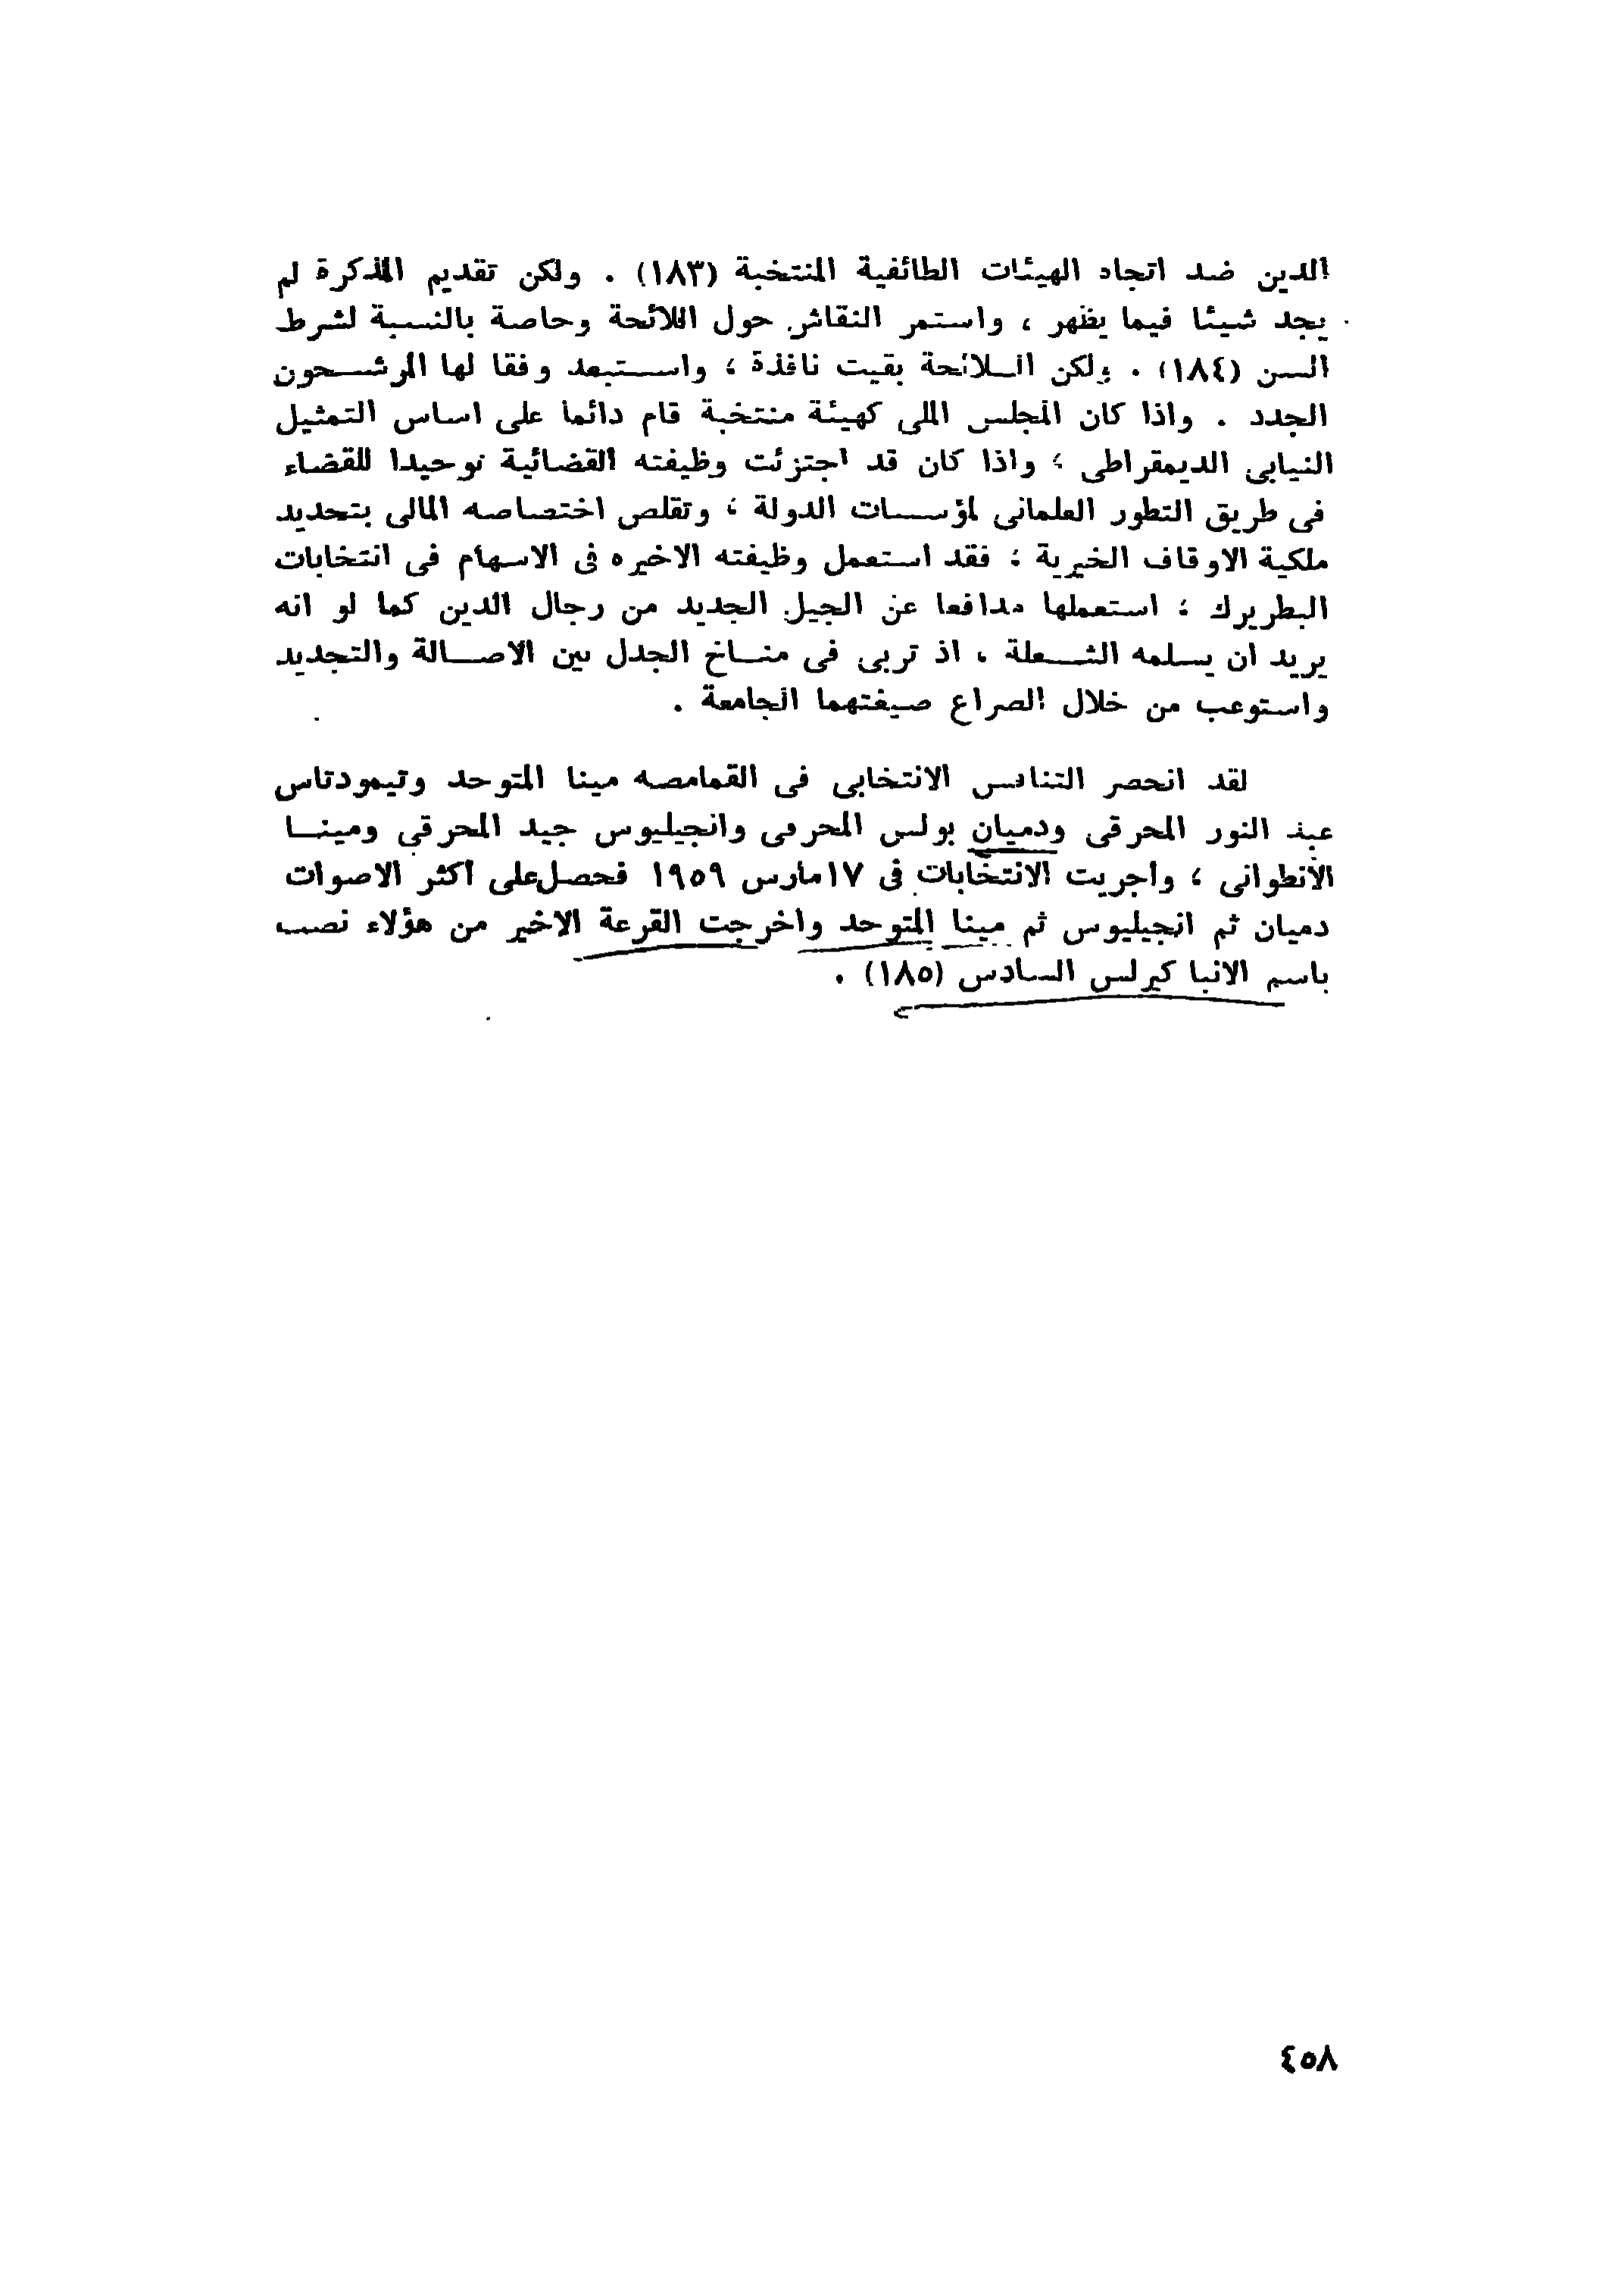 الدين ضد اتجاه الهيئات الطائفية المنتخبة (١٨٣) . ولكن تقديم المذكرة لم
يجد شيئا فيما يظهر ، واستمر النقاش حول اللائحة وخاصة بالنسبة لشرط
السن (١٨٤) . ولكن اللائحة بقيت نافذة ، واستبعد وفقا لها المرشحون
الجدد . واذا كان المجلس الملى كهيئة منتخبة قام دائما على اساس التمثيل
النيابى الديمقراطى ، واذا كان قد اجتزئت وظيفته القضائية توحيدا للقضاء
فى طريق التطور العلمانى لمؤسسات الدولة ، وتقلص اختصاصه المالى بتحديد
ملكية الاوقاف الخيرية ، فقد استعمل وظيفته الاخيره فى الاسهام فى انتخابات
البطريرك ، استعملها مدافعا عن الجيل الجديد من رجال الدين كما لو انه
يريد ان يسلمه الشعلة ، اذ تربى فى مناخ الجدل بين الاصالة والتجديد
واستوعب من خلال الصراع صيغتهما الجامعة .
لقد انحصر التنافس الانتخابى فى القمامصه مينا المتوحد وتيمودتاس
عبد النور المحرقى ودميان بولس المحرقى وانجيليوس جيد المحرقى ومينا
الانطوانى ، وأجريت الانتخابات فى ١٧ مارس ١٩٥٩ فحصل على أكثر الاصوات
دميان ثم انجيليوس ثم مينا المتوحد واخرجت القرعة الاخير من هؤلاء نصب
باسم الانبا كيرلس السادس (١٨٥) .
٤٥٨